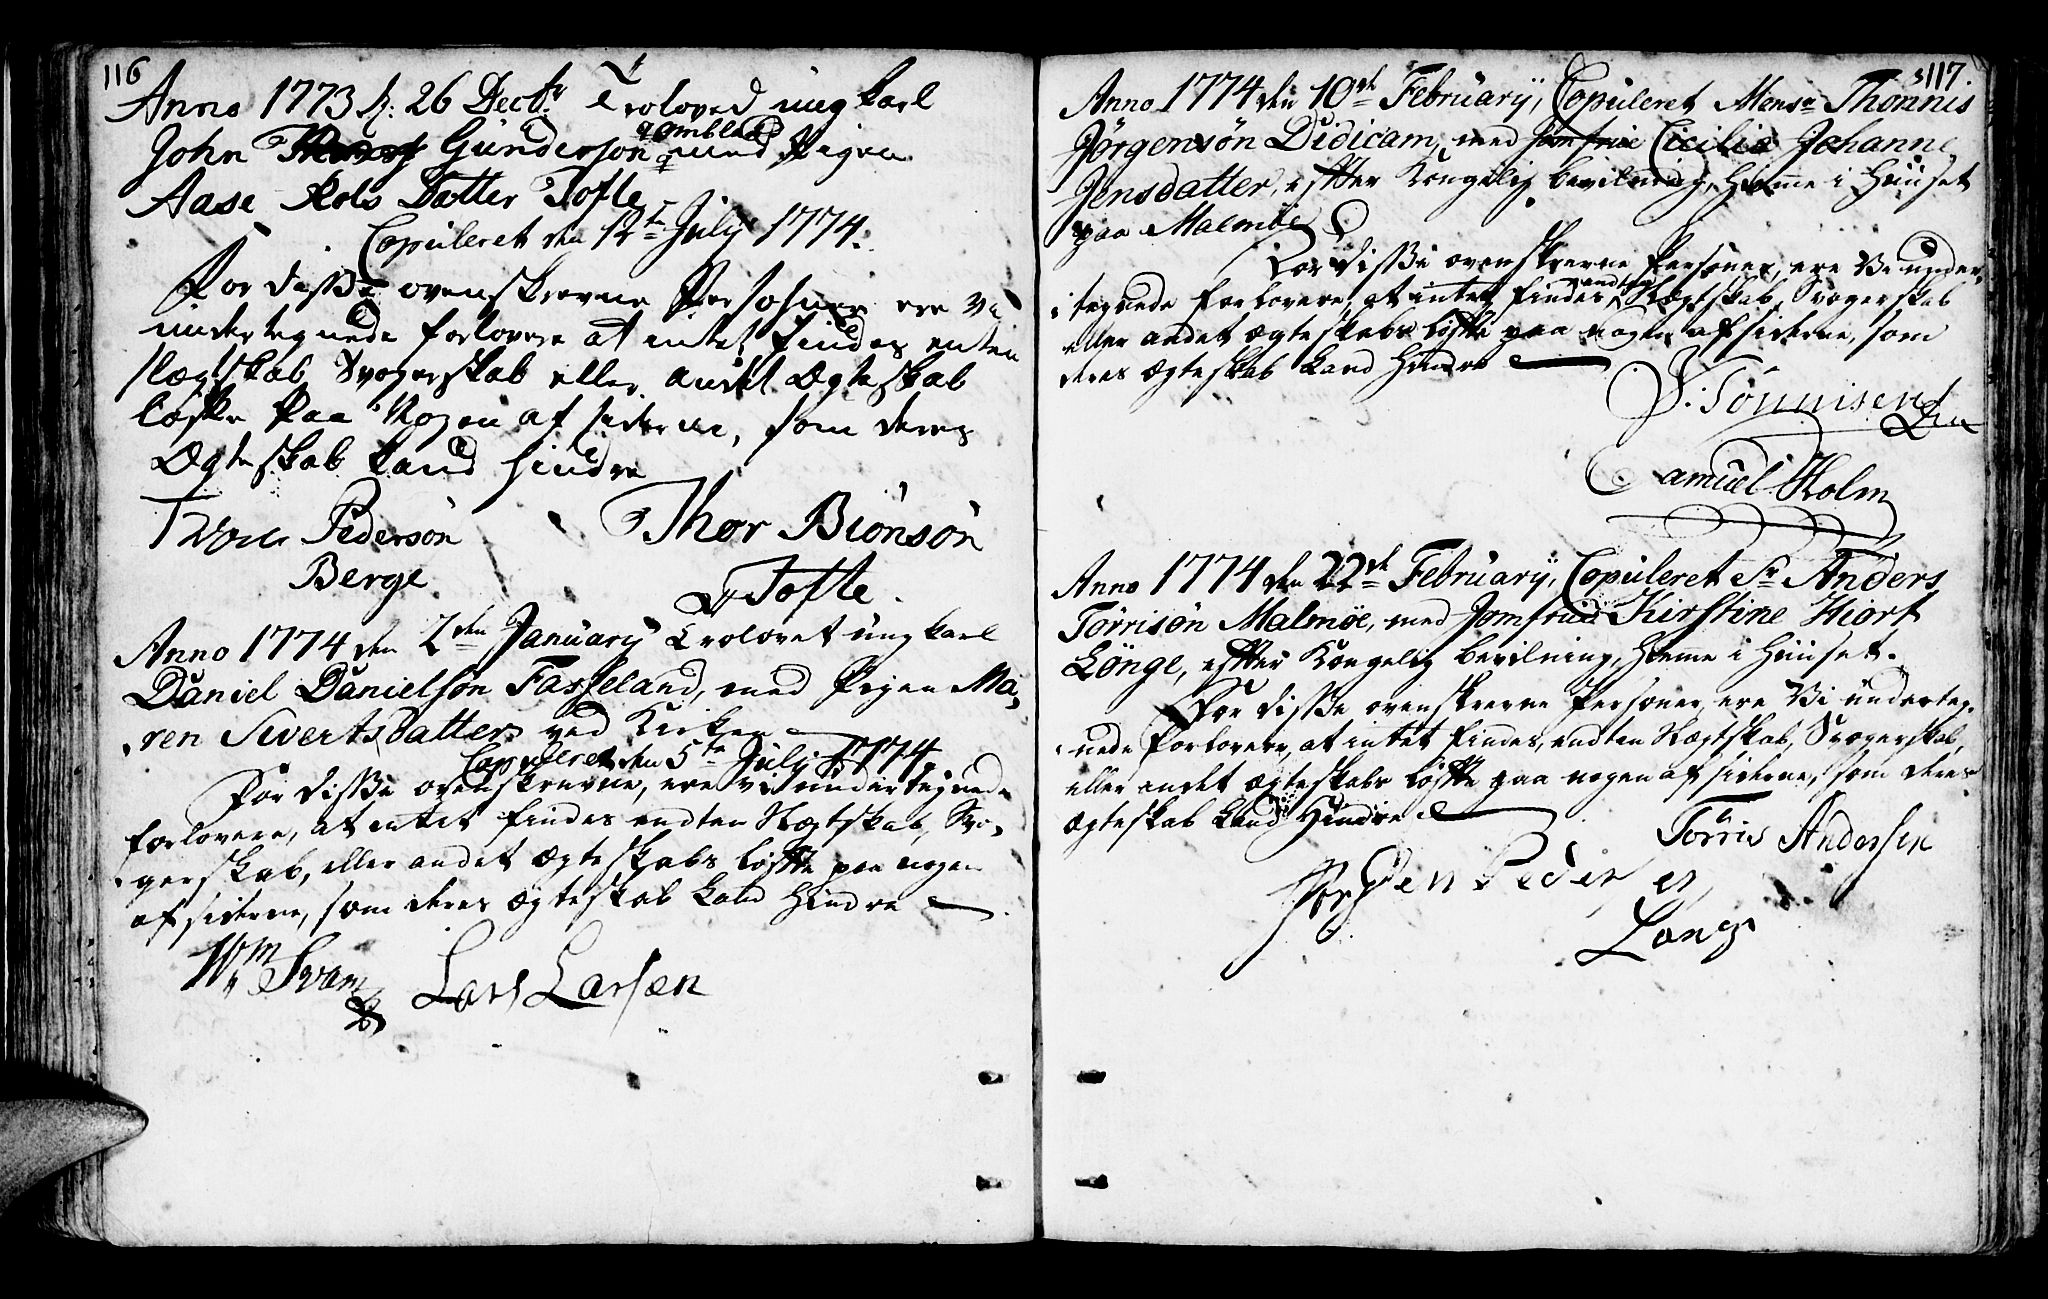 116
Anno 1773 d: 26 Decbr Troloved ung karl
John Gunderson Omblad med Pigen
Aase Rols Datter Tofte
Copuleret den 12te July 1774.
For disse ovenskrevne Persohner ere vi
undertegnede forlovere at intet findes enten
slægtskab Svogerskab eller andet Ægteskab
løfte paa Nogen af siderne, som deres
Ægteskab kand hindre
Pedersön Thor Biönsön
Berge Tofte.
Anno 1774 den 2den January Trolovet ung karl
Daniel Danielsön Fasseland, med Pigen Ma-
ren Sivertsdatter ved Kirken
Copuleret den 5te July 1774.
For disse ovenskrevne, ere vi undertegnede
forlovere, at intet findes endten Slægtskab, Svo-
gerskab, eller andet Ægteskabs løffte paa nogen
af siderne, som deres Ægteskab kand Hindre
Wm Svan Lars Larsen
117.
Anno 1774 den 10de February, Copuleret Monsr Thonnis
Jörgensön Didicam, med Jomfrue Cicilia Johanne
Jensdatter, effter Kongelig bevilning, Hiemme i Huuset
paa Malmöe
For disse ovenskrevne Personer, ere Vi under-
tegnede forlovere, at intet findes endten Slægtskab, Svogerskab
eller andet Ægteskabs løffte paa nogen af siderne, som
deres Ægteskab kand Hindre
Tönnisen
Samuel Holm
Anno 1774 den 22de February, Copuleret Sr Anders
Törrisön Malmöe, med Jomfrue Kirstine Hiort
Lönge, effter Kongelig bevilning, Hiemme i Huuset.
For disse ovenskrevne Personer, ere Vi underteg-
nede forlovere, at intet findes, endten Slægtskab, Svogerskab,
eller andet Ægteskabs løffte paa nogen af siderne, som deres
Ægteskab kand Hindre
Törris Andersen
Pedersen
Long